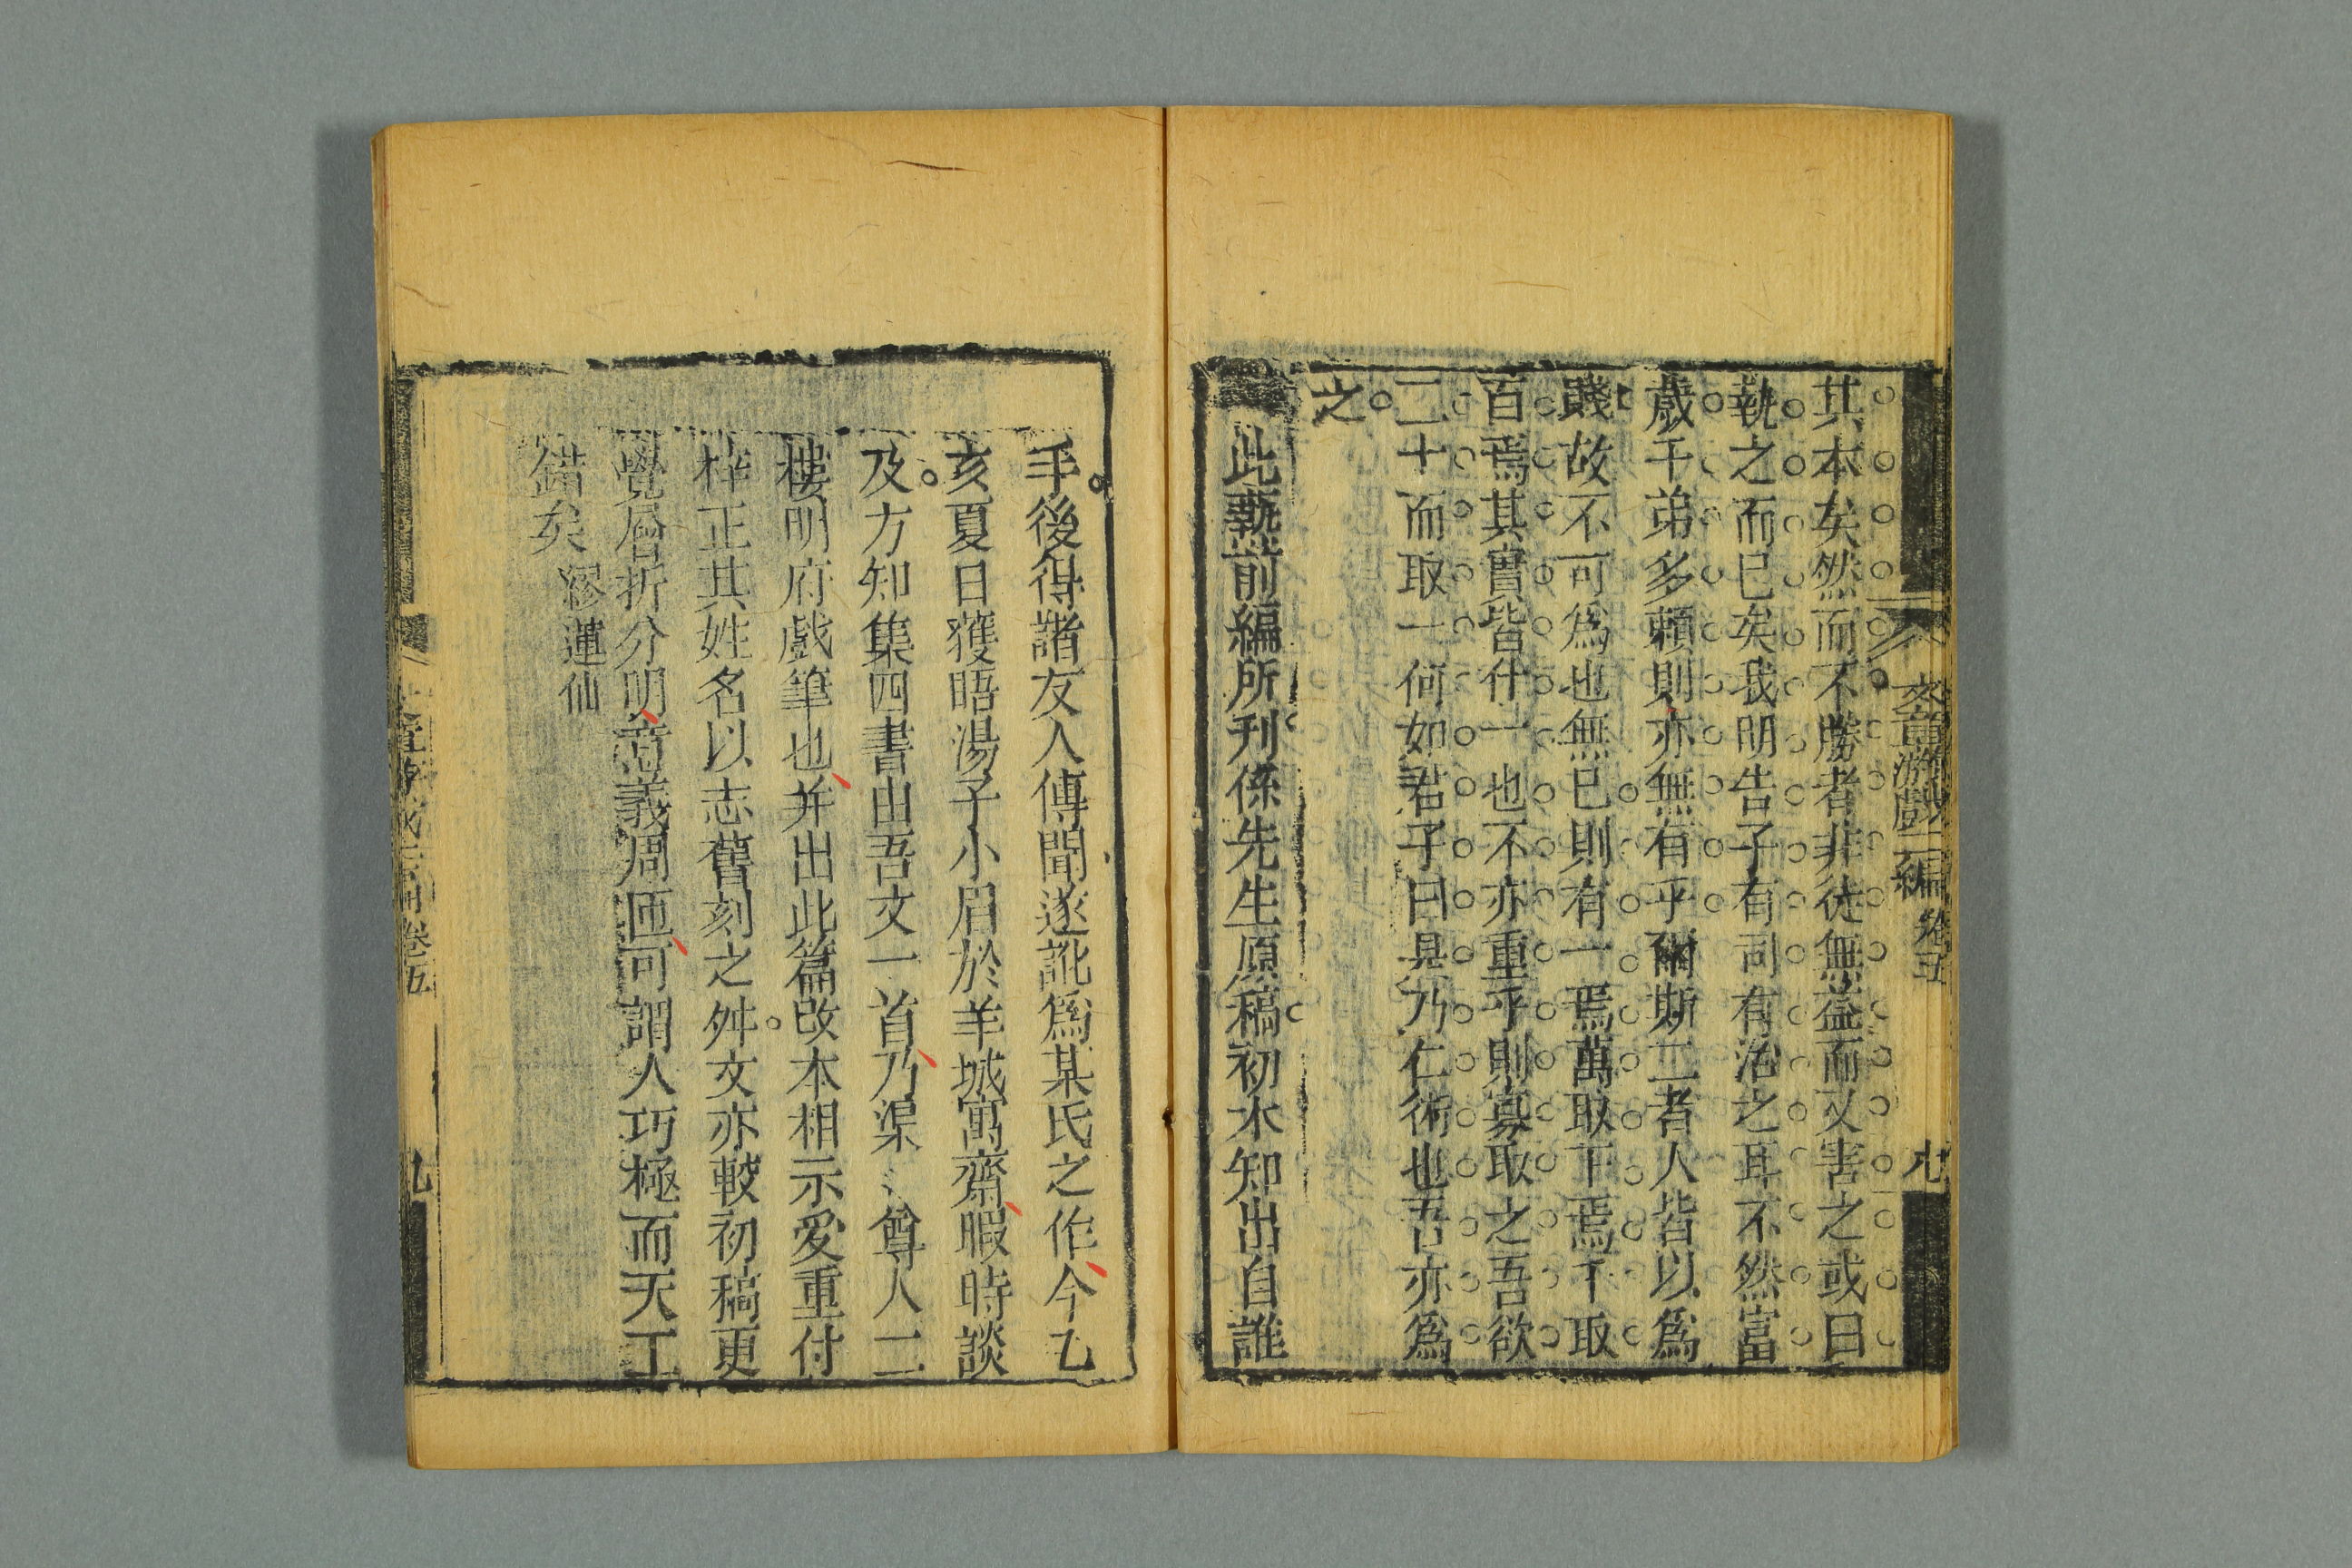 文章游戲二編 卷五
其本矣然而不勝者非徒無益而又害之或曰
執之而已矣我明告子有司有治之耳不然富
歲子弟多賴則亦無有乎爾斯二者人皆以爲
賤故不可爲也無已則有一焉萬取千焉千取
百焉其實皆什一也不亦重乎則寡取之吾欲
二十而取一何如君子曰是乃仁術也吾亦爲
之
此藝前編所刊係先生原稿初未知出自誰
手後得諸友人傳聞遂訛爲某氏之作今乙
亥夏日獲晤湯子小眉於羊城寓齋暇時談
及方知集四書出吾文一首乃渠令尊人二
樓明府戲筆也并出此篇改本相示愛重付
梓正其姓名以志舊刻之舛文亦較初稿更
覺層折分明意義周匝可謂人巧極而天工
錯矣 繆蓮仙
卷五